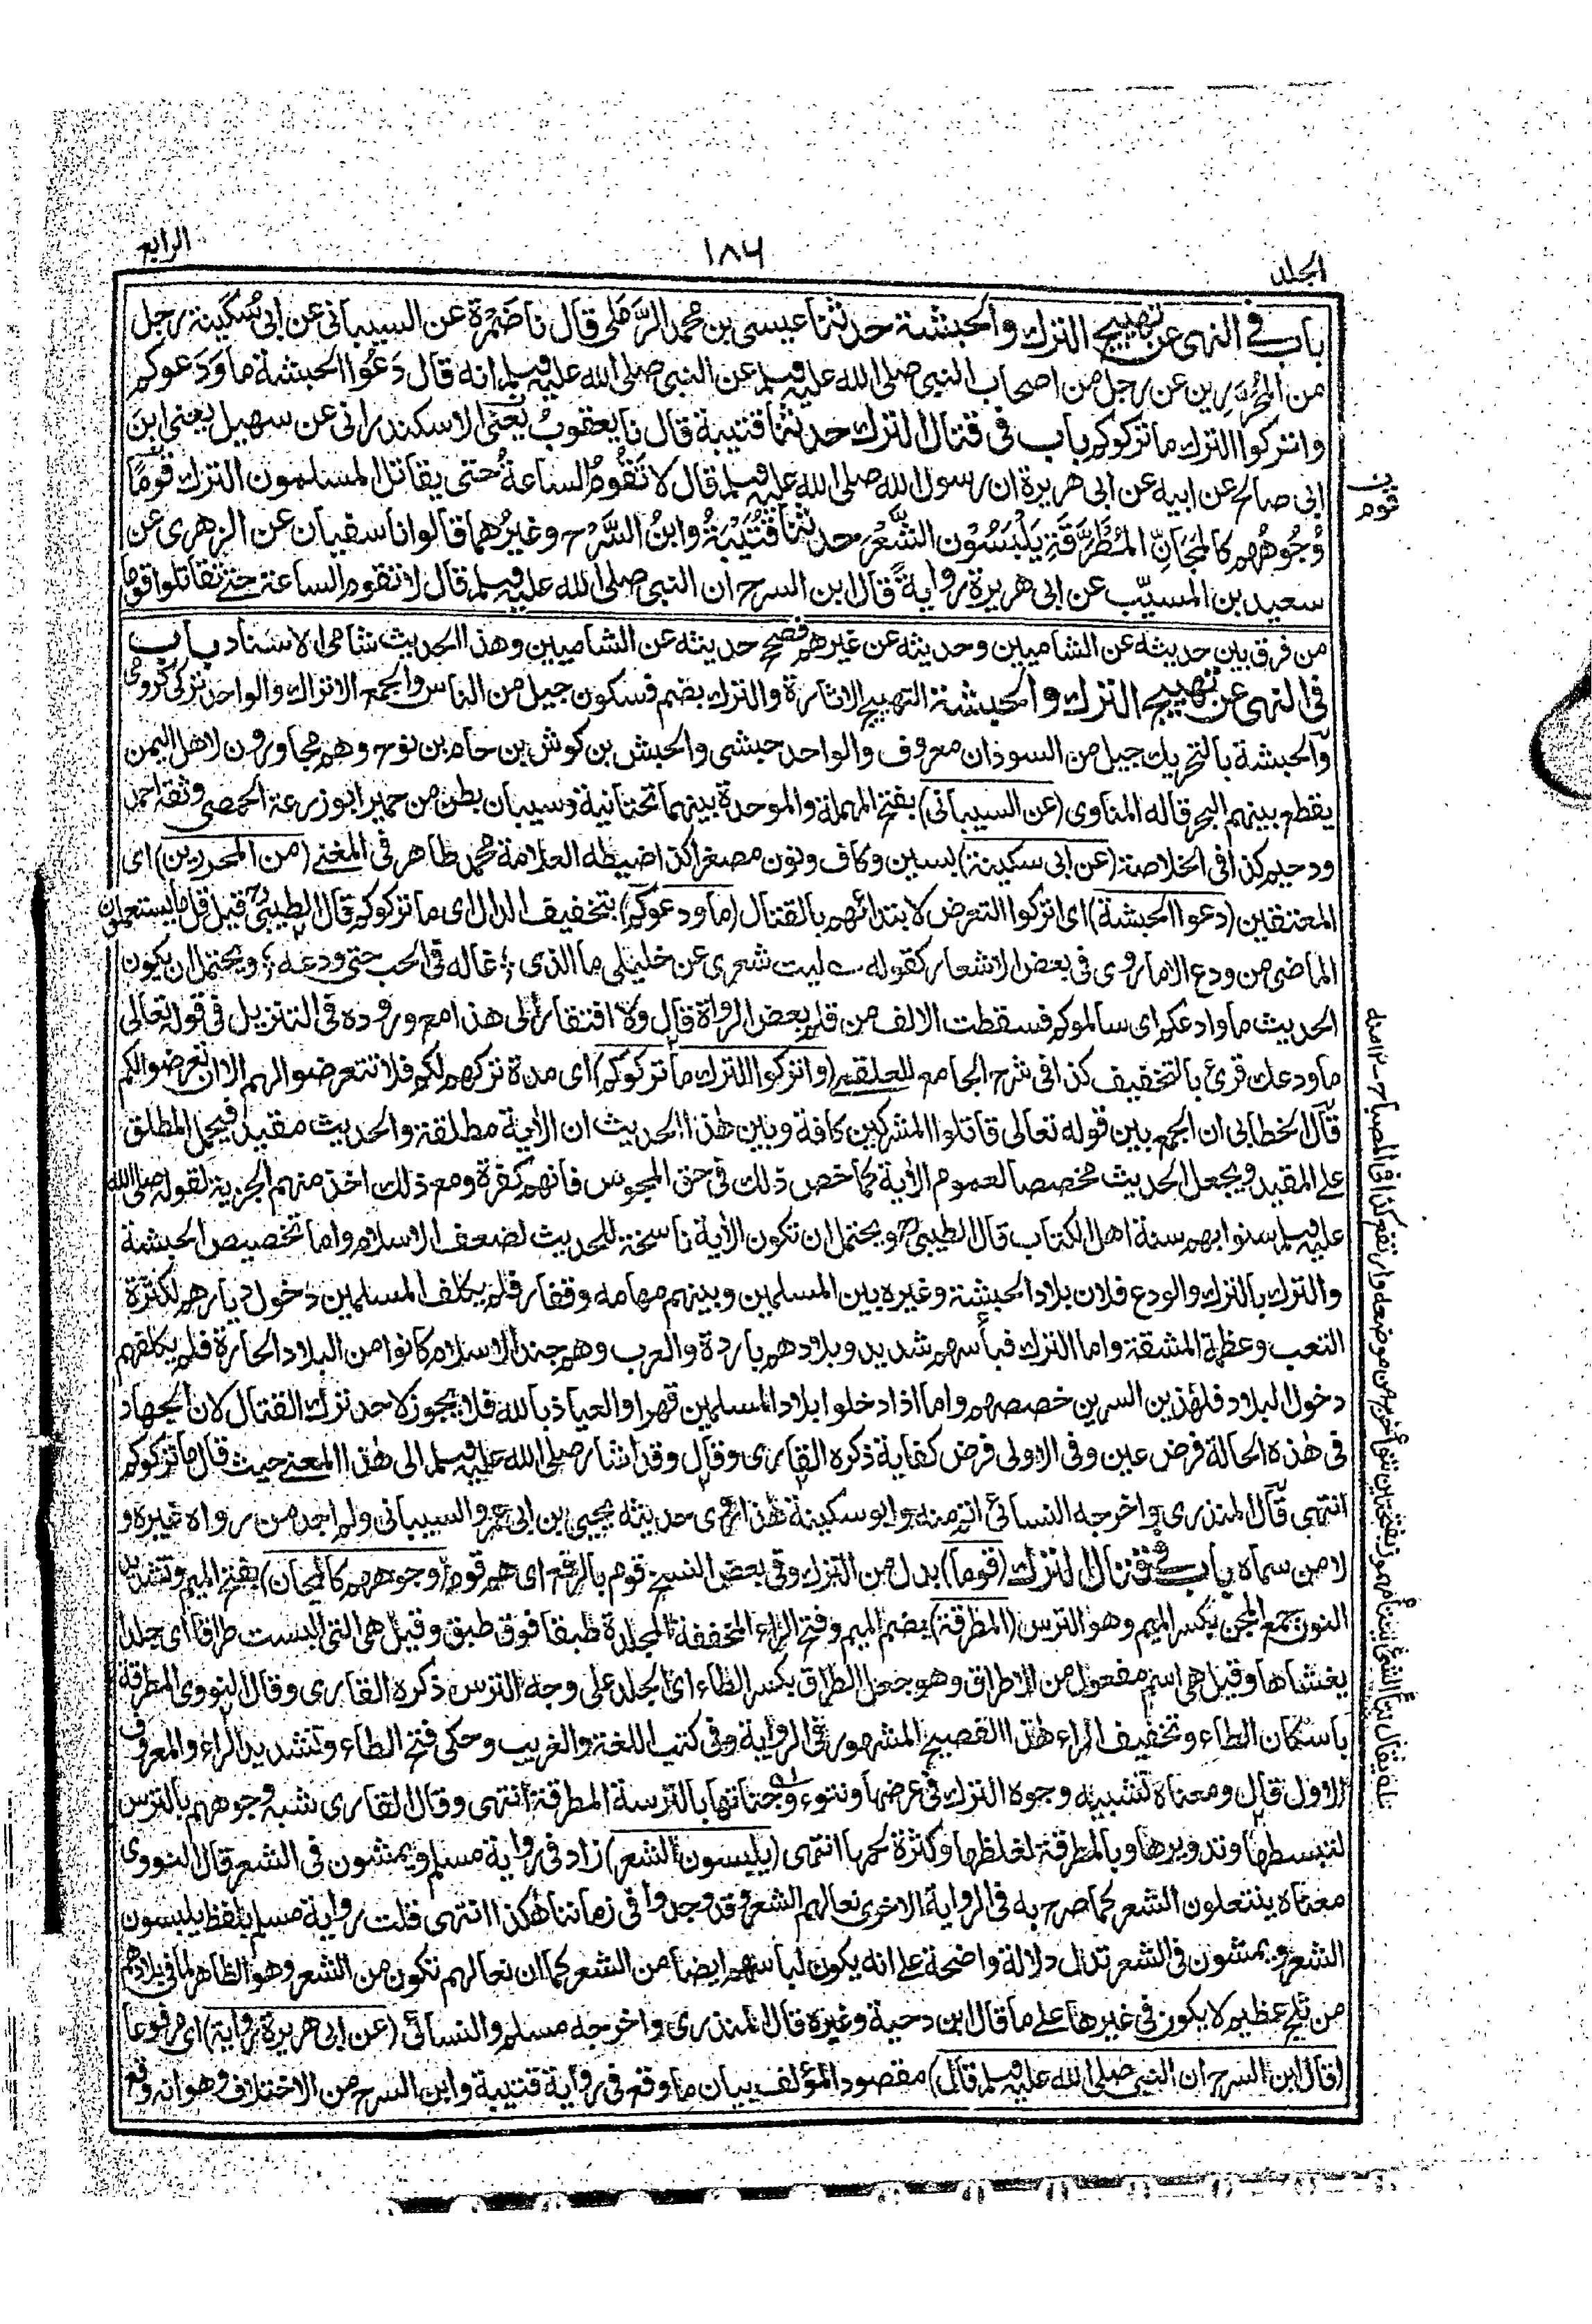 الجلد
١٨٦
الرابع
باب في النهى عن تهييج الترك والحبشة حدثنا عيسى بن محمد الرَّمَلى قال نا ضَمُرَة عن السيبانى عن ابى سُكَينة رجل
من المُحرَّرِين عن رجل من اصحاب النبى صلى الله عليه وسلم عن النبى صلى الله عليه وسلم انه قال دَعُوا الحبشة ما وَدَعوكم
واتركوا الترك ما تركوكم باب فى قتال الترك حدثنا قتيبة قال نا يعقوبُ يَعنى الاسكندرانى عن سهيل يعنى ابنَ
ابى صالح عن ابيه عن ابى هريرة ان رسول الله صلى الله عليه وسلم قال لا تَقُومُ الساعةُ حتى يقاتل المسلمون الترك قَومًا
وُجُوهُهم كالمَجَانِّ المُطْرَقَةِ يَلْبَسُوْن الشَّعْرَ حدثنا قُتَيْبَةُ وابنُ السَّرْح وغيرُهما قالوا نا سفيان عن الزهرى عن
سعيد بن المسيّب عن ابى هريرة روايةً قال ابن السرح ان النبى صلى الله عليه وسلم قال لا تقوم الساعة حتى تقاتلوا قوما
من فرق بين حديثه عن الشاميين وحديثه عن غيرهم فصحح حديثه عن الشاميين وهذا الحديث شامى الاسناد باب
فى النهى عن تهييج الترك والحبشة التهييج الاثارة والترك بضم فسكون جيل من الناس والجمع الاتراك والواحد تركى كرومى
والحبشة بالتحريك جيل من السودان معروف والواحد حبشى والحبش بن كوش بن حام بن نوح وهم مجاورون لاهل اليمن
يقطع بينهم البحر قاله المناوى (عن السيبانى) بفتح المهملة والموحدة بينهما تحتانية وسيبان بطن من حمير ابو زرعة الحمصى وثقه احمد
ودحيم كذا فى الخلاصة (عن ابى سكينة) بسين وكاف ونون مصغرا كذا ضبطه العلامة محمد طاهر فى المغنى (من المحررين) اى
المعتقين (دعوا الحبشة) اى اتركوا التعرض لابتدائهم بالقتال (ما ودعوكم) بتخفيف الدال اى ما تركوكم قال الطيبى قيل قل ما يستعملون
الماضى من ودع الا ما روى فى بعض الاشعار كقوله ؎ ليت شعرى عن خليلى ما الذى ؛ غاله فى الحب حتى ودعه ؛ ويحتمل ان يكون
الحديث ما وادعكم اى سالموكم فسقطت الالف من قلم بعض الرواة قال ولا افتقار الى هذا مع وروده فى التنزيل فى قوله تعالى
ما ودعك قرئ بالتخفيف كذا فى شرح الجامع للعلقمى (واتركوا الترك ما تركوكم) اى مدة تركهم لكم فلا تتعرضوا لهم الا ان تعرضوا لكم
قال الخطابى ان الجمع بين قوله تعالى قاتلوا المشركين كافة وبين هذا الحديث ان الاية مطلقة والحديث مقيد فيحمل المطلق
على المقيد ويجعل الحديث مخصصا لعموم الاية كما خص ذلك فى حق المجوس فانهم كفرة ومع ذلك اخذ منهم الجزية لقوله صلى الله
عليه وسلم سنوا بهم سنة اهل الكتاب قال الطيبى ويحتمل ان تكون الاية ناسخة للحديث لضعف الاسلام واما تخصيص الحبشة
والترك بالترك والودع فلان بلاد الحبشة وغيره بين المسلمين وبينهم مهامه وقفار فلم يكلف المسلمين دخول ديارهم لكثرة
التعب وعظمة المشقة واما الترك فبأسهم شديد وبلادهم باردة والعرب وهم جند الاسلام كانوا من البلاد الحارة فلم يكلفهم
دخول البلاد فلهذين السرين خصصهم واما اذا دخلوا بلاد المسلمين قهرا والعياذ بالله فلا يجوز لاحد ترك القتال لان الجهاد
فى هذه الحالة فرض عين وفى الاولى فرض كفاية ذكره القارى وقال وقد اشار صلى الله عليه وسلم الى هذا المعنى حيث قال ما تركوكم
انتهى قال المنذرى واخرجه النسائى اتم منه وابو سكينة هذا روى حديثه يحيى بن ابى عمرو السيبانى ولم اجد من رواه غيره و
لا من سماه باب فى قتال الترك (قوما) بدل من الترك وفى بعض النسخ قوم بالرفع اى هم قوم (وجوههم كالمجان) بفتح الميم وتشديد
النون جمع المجن بكسر الميم وهو الترس (المطرقة) بضم الميم وفتح الراء المخففة المجلدة طبقا فوق طبق وقيل هى التى البست طراقا اى جلدا
يغشاها وقيل هى اسم مفعول من الاطراق وهو جعل الطراق بكسر الطاء اى الجلد على وجه الترس ذكره القارى وقال النووى المطرقة
باسكان الطاء وتخفيف الراء هذا الفصيح المشهور فى الرواية وفى كتب اللغة والغريب وحكى فتح الطاء وتشديد الراء والمعروف
الاول قال ومعناه تشبيه وجوه الترك فى عرضها ونتوء وجناتها بالترسة المطرقة انتهى وقال القارى شبه وجوههم بالترس
لتبسطها وتدويرها وبالمطرقة لغلظها وكثرة لحمها انتهى (يلبسون الشعر) زاد فى رواية مسلم ويمشون فى الشعر قال النووى
معناه ينتعلون الشعر كما صرح به فى الرواية الاخرى نعالهم الشعر وقد وجدوا فى زماننا هكذا انتهى قلت رواية مسلم بلفظ يلبسون
الشعر ويمشون فى الشعر تدل دلالة واضحة على انه يكون لباسهم ايضا من الشعر كما ان نعالهم تكون من الشعر وهو الظاهر لما فى بلادهم
من ثلج عظيم لا يكون فى غيرها على ما قال ابن دحية وغيره قال المنذرى واخرجه مسلم والنسائى (عن ابى هريرة رواية) اى مرفوعا
(قال ابن السرح ان النبى صلى الله عليه وسلم قال) مقصود المؤلف بيان ما وقع فى رواية قتيبة وابن السرح من الاختلاف وهو انه وقع
قوم
يقال نتأ الشئ ينتأ مهموز بفتحتين نتوأ خرج من موضعه وارتفع كذا فى المصباح ١٢ منه